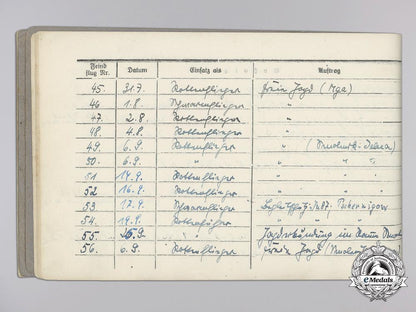 Feind flug Nr. Datum Einsatz als Auftrag
45. 31.7. Rottenflieger freie Jagd (Mga)
46 1.8. Schwarmflieger "
47. 2.8 Rottenflieger "
48. 4.8. Rottenflieger "
49. 6.9. Rottenflieger "
50. 6.9. " "
51 14.9. Rottenflieger "
52 16.9. Rottenflieger "
53 17.9. Schwarmflieger
54. 19.9. Rottenflieger "
55. 9. " im Raum
56. 9. Rottenflieger freie Jagd
eMedals